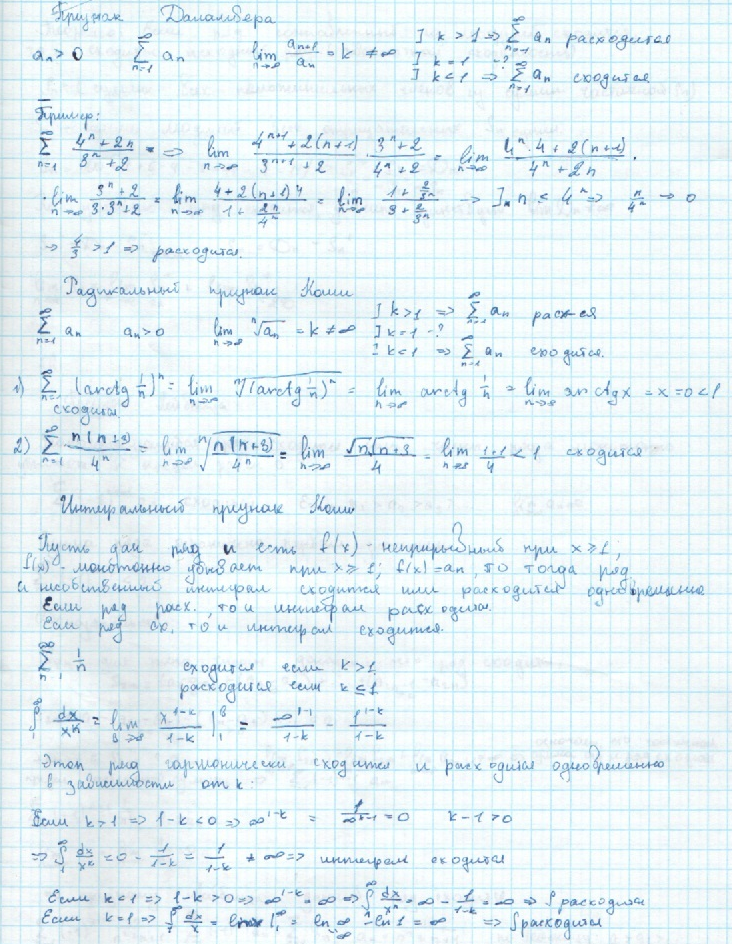 Признак Даламбера
aₙ > 0   ∑_{n=1}^{∞} aₙ   lim_{n→∞} aₙ₊₁/aₙ = k ≠ ∞   ] k > 1 ⇒ ∑_{n=1}^{∞} aₙ расходится
] k = 1 -?
] k < 1 ⇒ ∑_{n=1}^{∞} aₙ сходится
Пример:
∑_{n=1}^{∞} (4ⁿ + 2n)/(3ⁿ + 2) ⇒ lim_{n→∞} (4ⁿ⁺¹ + 2(n+1))/(3ⁿ⁺¹ + 2) · (3ⁿ + 2)/(4ⁿ + 2n) = lim_{n→∞} (4ⁿ·4 + 2(n+1))/(4ⁿ + 2n) ·
· lim_{n→∞} (3ⁿ + 2)/(3·3ⁿ + 2) = lim_{n→∞} (4 + 2(n+1)4)/(1 + 2n/4ⁿ) = lim_{n→∞} (1 + 2/3ⁿ)/(3 + 2/3ⁿ) → ] n ≤ 4ⁿ ⇒ n/4ⁿ → 0
→ 4/3 > 1 ⇒ расходится.
Радикальный признак Коши
∑_{n=1}^{∞} aₙ   aₙ > 0   lim_{n→∞} ⁿ√aₙ = k ≠ ∞   ] k > 1 ⇒ ∑_{n=1}^{∞} aₙ расх-ся
] k = 1 -?
] k < 1 ⇒ ∑_{n=1}^{∞} aₙ сходится.
1) ∑_{n=1}^{∞} (arctg 1/n)ⁿ = lim_{n→∞} ⁿ√((arctg 1/n)ⁿ) = lim_{n→∞} arctg 1/n = lim_{n→∞} arctg x = x = 0 < 1
сходится
2) ∑_{n=1}^{∞} n(n+3)/4ⁿ = lim_{n→∞} ⁿ√(n(n+3)/4ⁿ) = lim_{n→∞} √n√(n+3)/4 = lim_{n→∞} 1·1/4 < 1 сходится
Интегральный признак Коши
Пусть дан ряд и есть f(x) - непрерывный при x ≥ 1;
f(x) - монотонно убывает при x ≥ 1; f(x) = aₙ, то тогда ряд
и несобственный интеграл сходится или расходится одновременно
Если ряд расх., то и интеграл расходится.
Если ряд сх., то и интеграл сходится.
∑_{1}^{∞} 1/n   сходится если k > 1
расходится если k ≤ 1
∫₁^∞ dx/xᵏ = lim_{b→∞} x^{1-k}/(1-k) |₁ᵇ = ∞^{1-k}/(1-k) - 1^{1-k}/(1-k)
Этот ряд гармонически сходится и расходится одновременно
в зависимости от k:
Если k > 1 ⇒ 1-k < 0 ⇒ ∞^{1-k} = 1/∞^{k-1} = 0   k-1 > 0
⇒ ∫₁^∞ dx/xᵏ = 0 - 1/(1-k) = 1/(1-k) ≠ ∞ ⇒ интеграл сходится
Если k < 1 ⇒ 1-k > 0 ⇒ ∞^{1-k} = ∞ ⇒ ∫₁^∞ dx/xᵏ = ∞ - 1/(1-k) = ∞ ⇒ ∫ расходится
Если k = 1 ⇒ ∫₁^∞ dx/x = ln x |₁^∞ = ln ∞ - ln 1 = ∞ ⇒ ∫ расходится